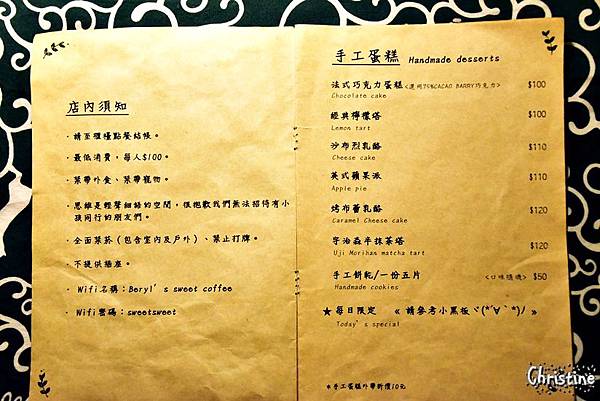 店內須知
·請至櫃檯點餐結帳。
·最低消費，每人$100。
·禁帶外食、禁帶寵物。
·思維是輕聲細語的空間，很抱歉我們無法招待有小
孩同行的朋友們。
·全面禁菸（包含室內及戶外）、禁止打牌。
·不提供插座。
·Wifi名稱：Beryl's sweet coffee
·Wifi密碼：sweetsweet
手工蛋糕 Handmade desserts
法式巧克力蛋糕<選用75%CACAO BARRY巧克力> $100
Chocolate cake
經典檸檬塔 $100
Lemon tart
沙布烈乳酪 $110
Cheese cake
英式蘋果派 $110
Apple pie
烤布蕾乳酪 $120
Caramel Cheese cake
宇治森半抹茶塔 $120
Uji Morihan matcha tart
手工餅乾/一份五片 <口味隨機> $50
Handmade cookies
★每日限定 《 請參考小黑板ヾ(*´∀｀*)ﾉ 》
Today's special
*手工蛋糕外帶折價10元
Christine